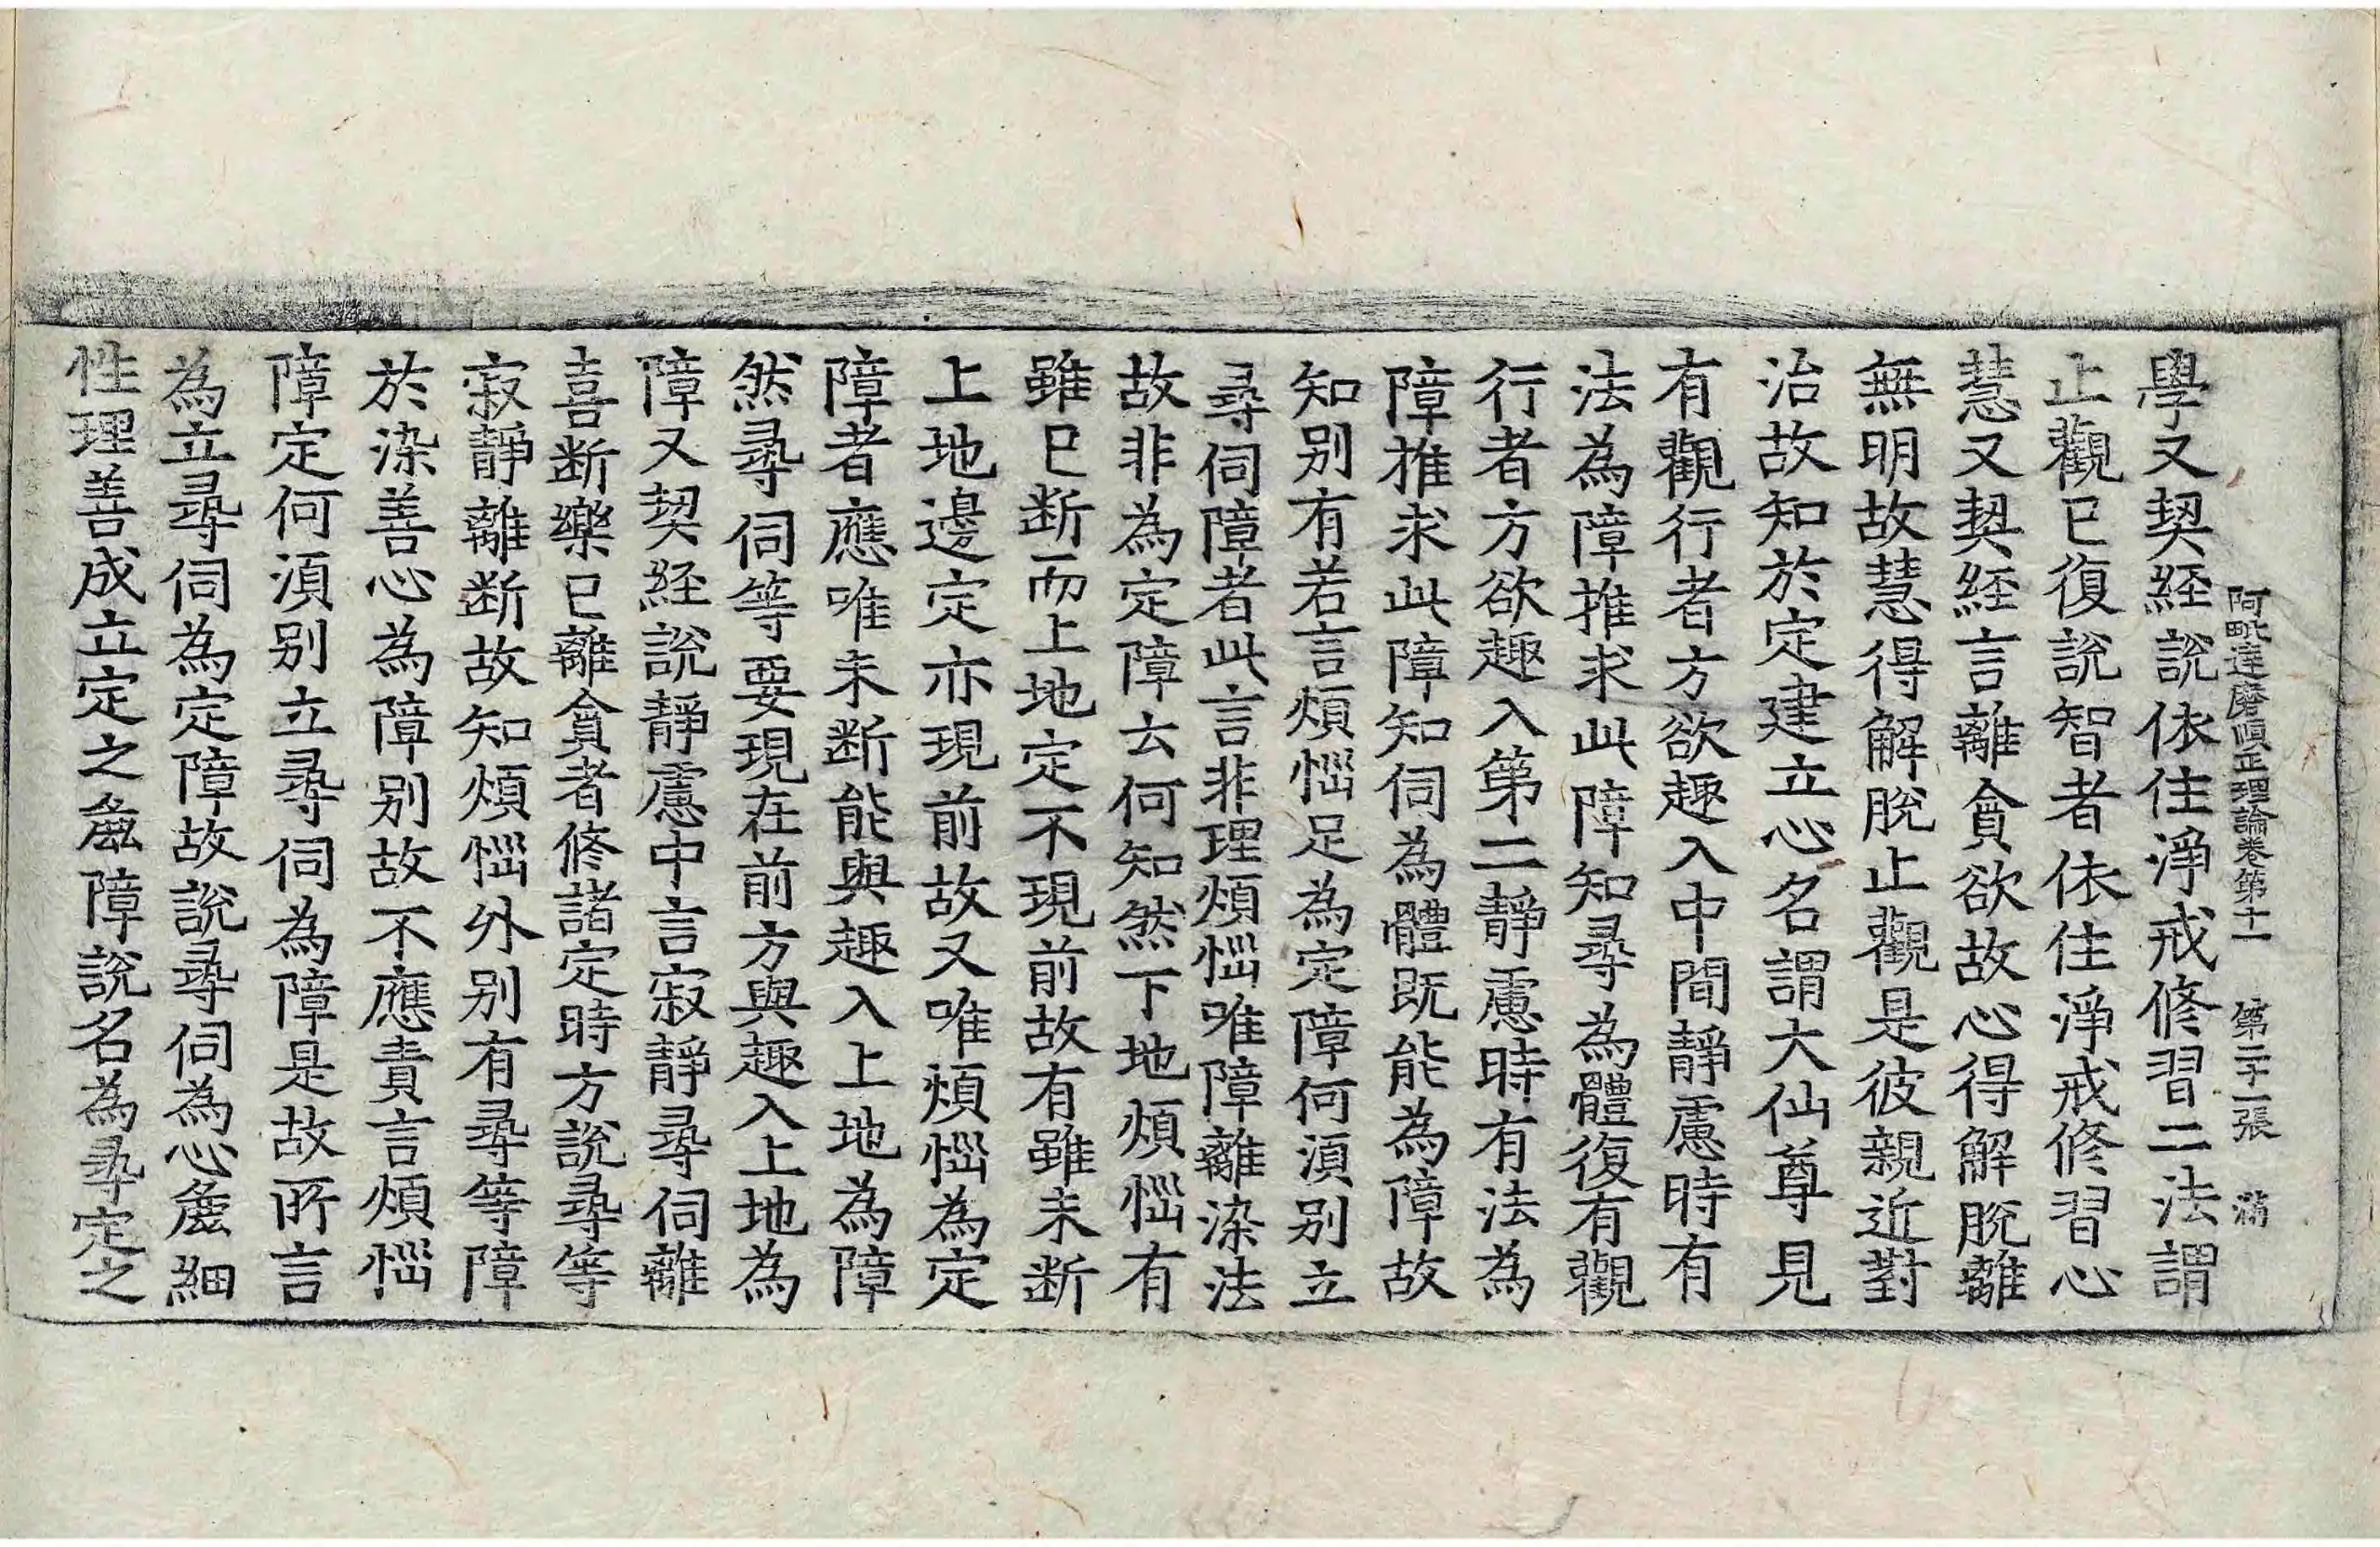 阿毗達磨順正理論卷第十一 第二十一張 滿
學又契經說依住淨戒修習二法謂
止觀已復說智者依住淨戒修習心
慧又契經言離貪欲故心得解脫離
無明故慧得解脫止觀是彼親近對
治故知於定建立心名謂大仙尊見
有觀行者方欲趣入中間靜慮時有
法為障推求此障知尋為體復有觀
行者方欲趣入第二靜慮時有法為
障推求此障知伺為體既能為障故
知別有若言煩惱足為定障何須別立
尋伺障者此言非理煩惱唯障離染法
故非為定障云何知然下地煩惱有
雖已断而上地定不現前故有雖未断
上地邊定亦現前故又唯煩惱為定
障者應唯未断能與趣入上地為障
然尋伺等要現在前方與趣入上地為
障又契經說靜慮中言寂靜尋伺離
喜断樂已離貪者修諸定時方說尋等
寂靜離断故知煩惱外別有尋等障
於染善心為障別故不應責言煩惱
障定何須別立尋伺為障是故所言
為立尋伺為定障故說尋伺為心麁細
性理善成立定之麁障說名為尋定之